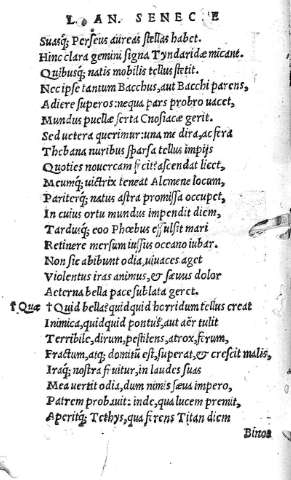 L. AN. SENECÆ
Suasq; Perseus aureas stellas habet.
Hinc clara gemini signa Tyndaridæ micant.
Quibusq; natis mobilis tellus stetit.
Nec ipse tantum Bacchus, aut Bacchi parens,
Adiere superos: nequa pars probro uacet,
Mundus puellæ serta Cnosiacæ gerit.
Sed uetera querimur: una me dira, ac fera
Thebana nuribus sparsa tellus impijs
Quoties nouercam fecit: ascendat licet,
Meumq; uictrix teneat Alcmene locum,
Pariterq; natus astra promissa occupet,
In cuius ortu mundus impendit diem,
Tardusq; eoo Phœbus effulsit mari
Retinere mersum iussus oceano iubar.
Non sic abibunt odia, uiuaces aget
Violentus iras animus, & sæuus dolor
Aeterna bella pace sublata geret.
† Quæ † Quid bella? quidquid horridum tellus creat
Inimica, quidquid pontus, aut aër tulit
Terribile, dirum, pestilens, atrox, ferum,
Fractum, atq; domitũ est, superat, & crescit malis,
Iraq; nostra fruitur, in laudes suas
Mea uertit odia, dum nimis sæua impero,
Patrem probauit: inde, qua lucem premit,
Aperitq; Tethys, qua ferens Titan diem
Binos